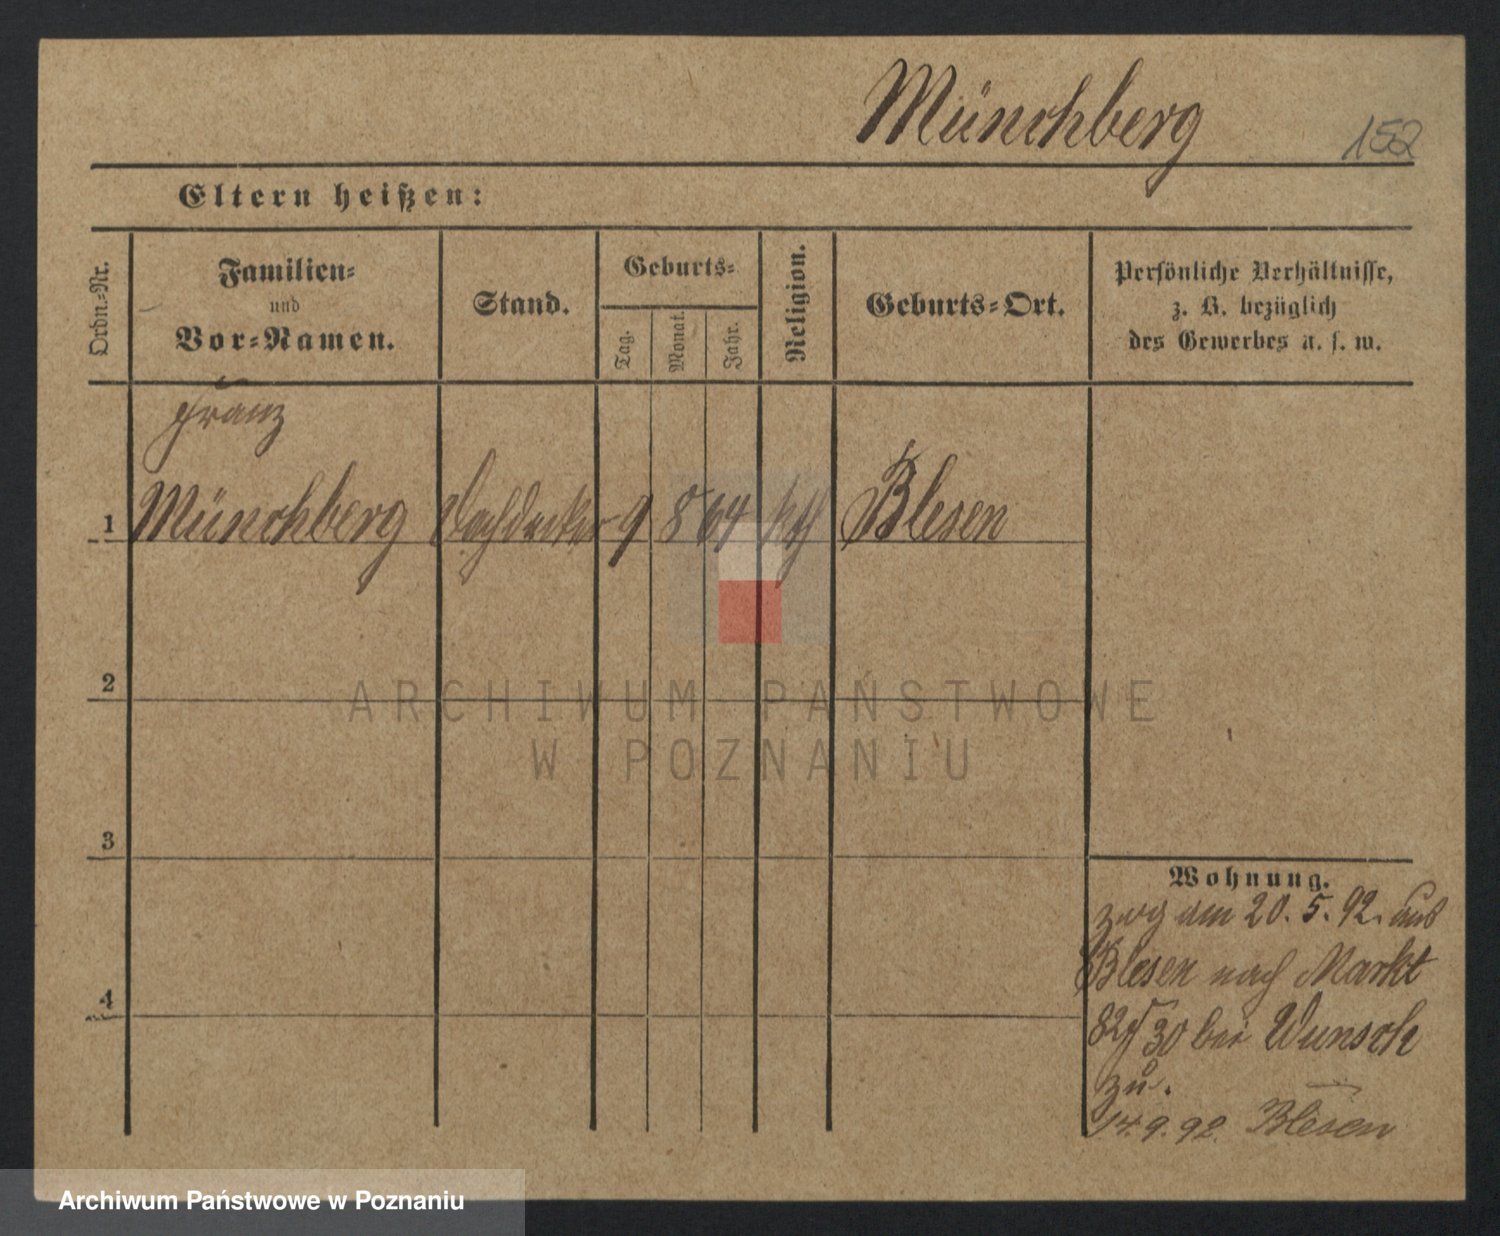 Münchberg
152
Eltern heißen:
Ordn.-Nr.
Familien-
und
Vor-Namen.
Stand.
Geburts-
Tag.
Monat.
Jahr.
Religion.
Geburts-Ort.
Persönliche Verhältnisse,
z. B. bezüglich
des Gewerbes u. s. w.
Franz
1 Münchberg Dachdecker 9 8 64 kth Blesen
2
3
4
ARCHIWUM PAŃSTWOWE
W POZNANIU
Wohnung.
zog am 20. 5. 92. aus
Blesen nach Markt
82/30 bei Wunsch
zu.
14. 9. 92. Blesen
Archiwum Państwowe w Poznaniu